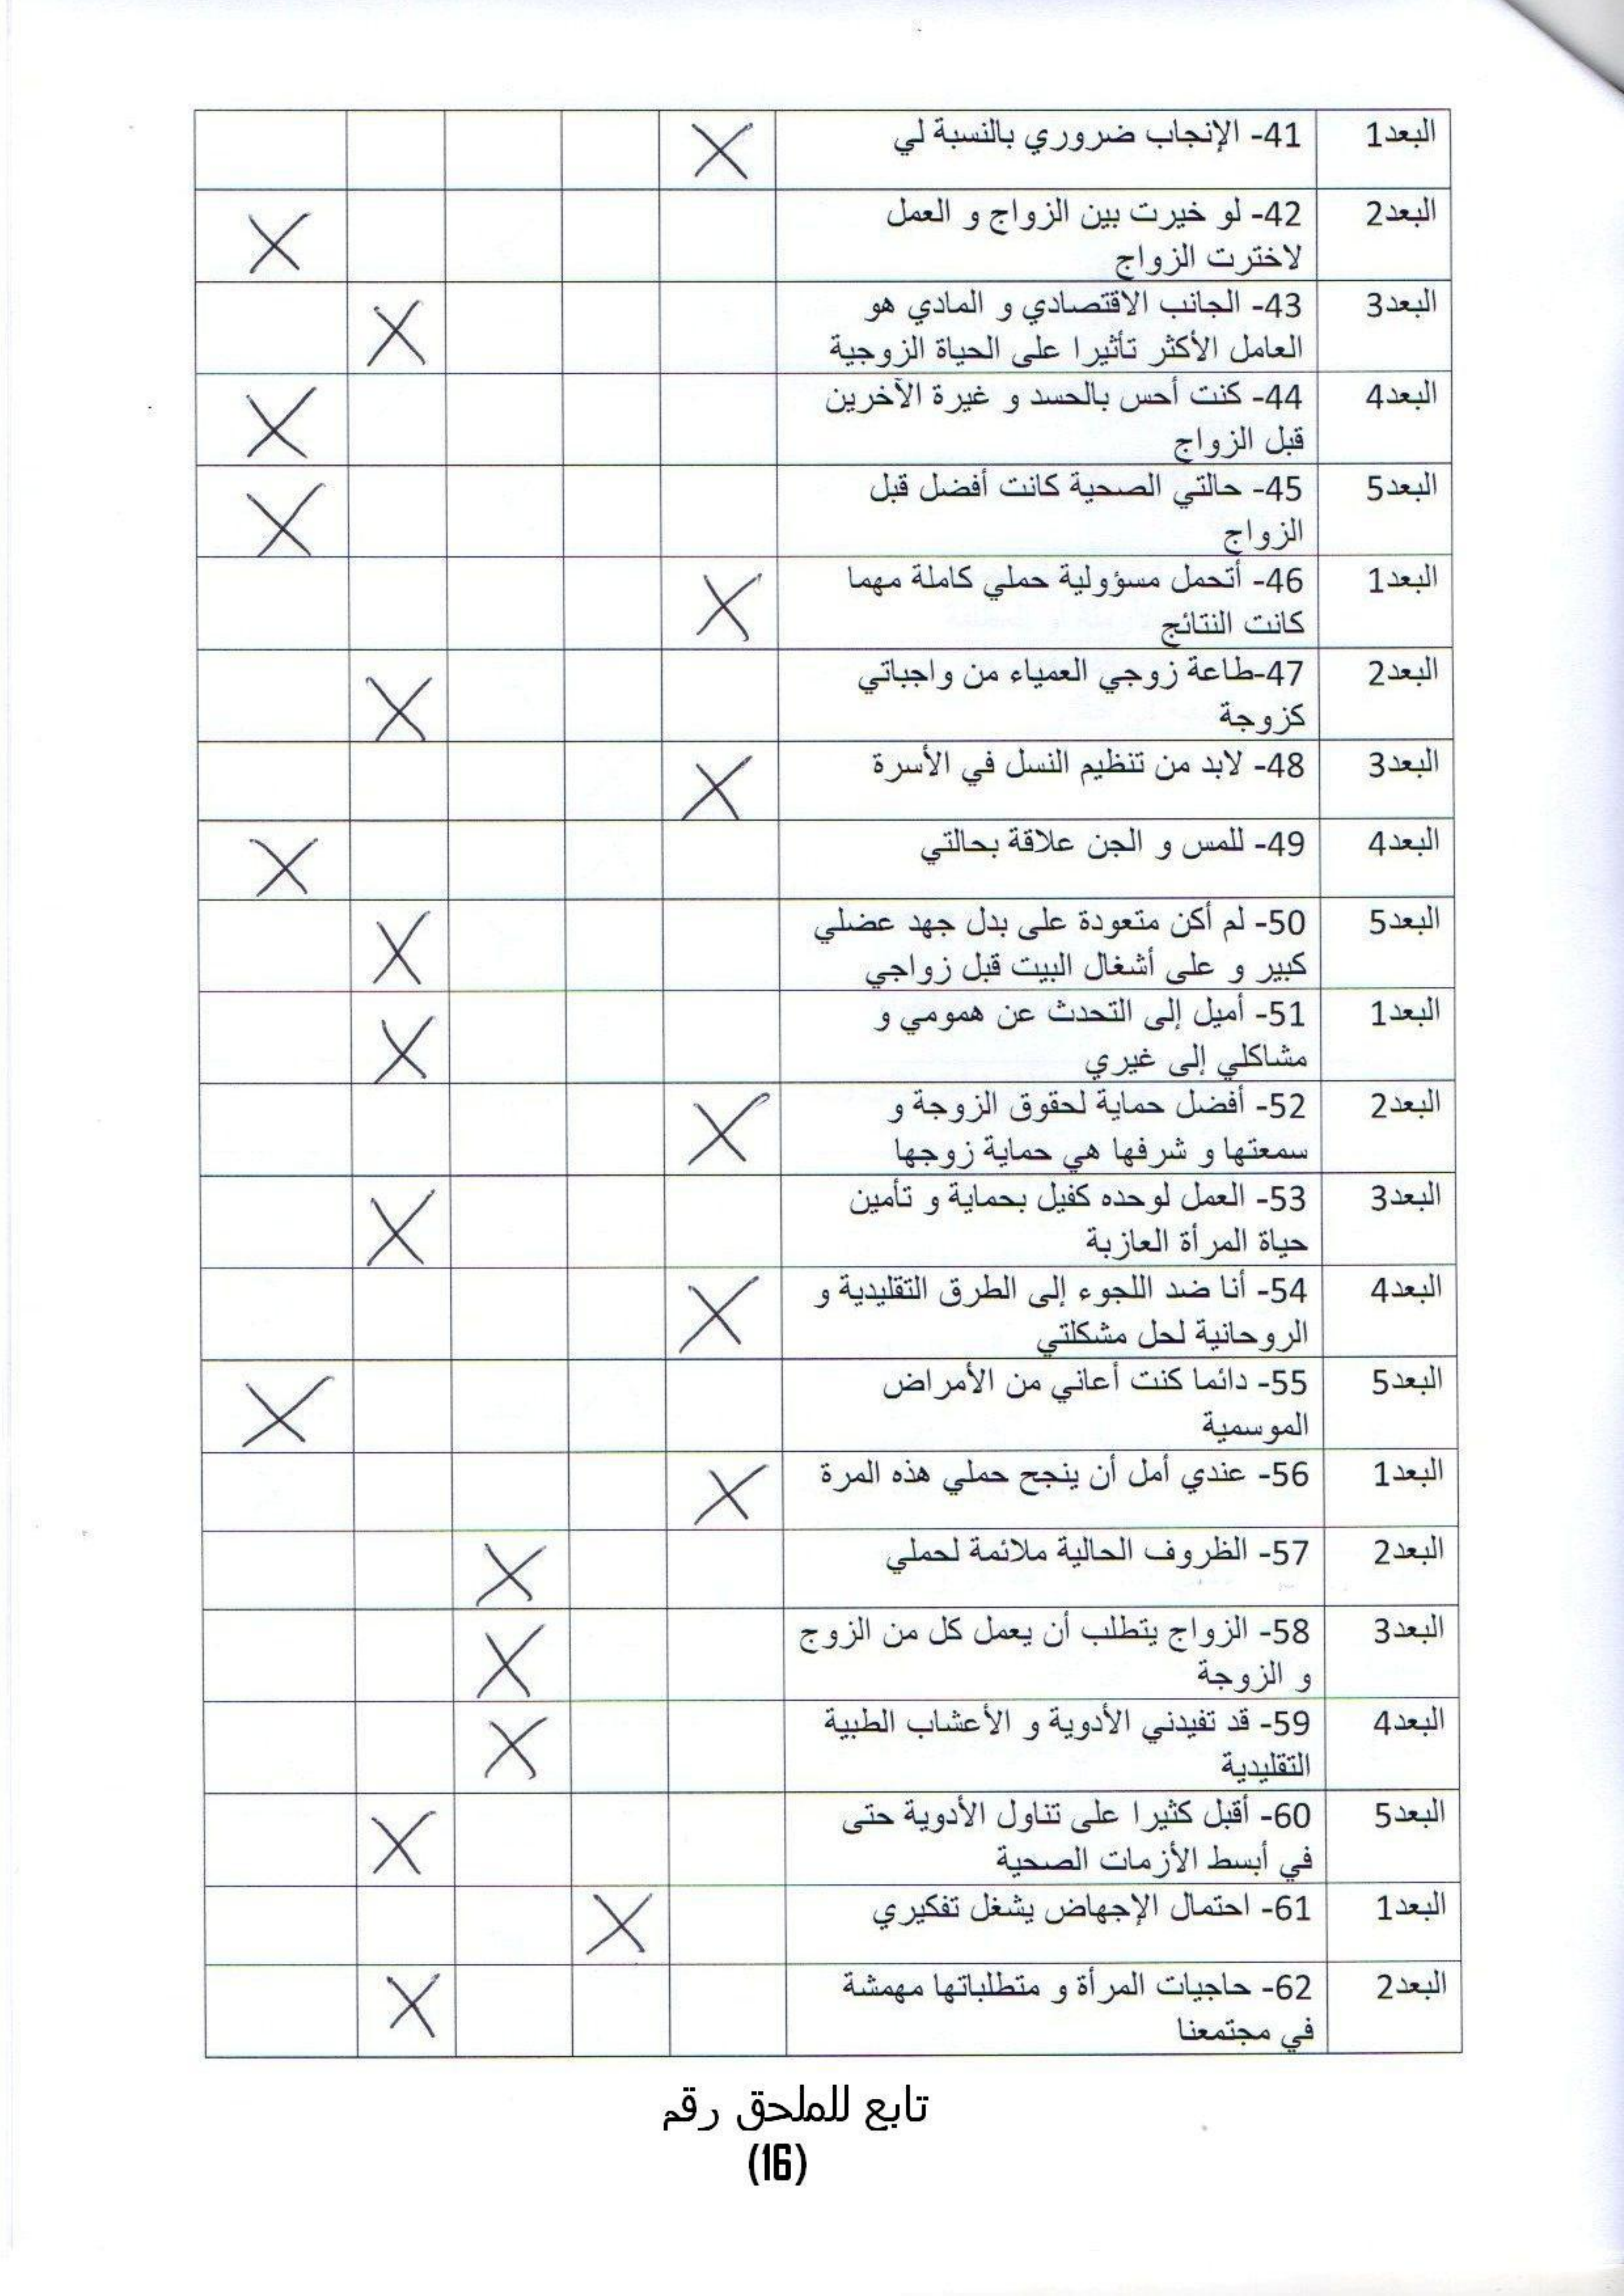 البعد1 41- الإنجاب ضروري بالنسبة لي X
البعد2 42- لو خيرت بين الزواج و العمل
لاخترت الزواج X
البعد3 43- الجانب الاقتصادي و المادي هو
العامل الأكثر تأثيرا على الحياة الزوجية X
البعد4 44- كنت أحس بالحسد و غيرة الآخرين
قبل الزواج X
البعد5 45- حالتي الصحية كانت أفضل قبل
الزواج X
البعد1 46- أتحمل مسؤولية حملي كاملة مهما
كانت النتائج X
البعد2 47-طاعة زوجي العمياء من واجباتي
كزوجة X
البعد3 48- لابد من تنظيم النسل في الأسرة X
البعد4 49- للمس و الجن علاقة بحالتي X
البعد5 50- لم أكن متعودة على بدل جهد عضلي
كبير و على أشغال البيت قبل زواجي X
البعد1 51- أميل إلى التحدث عن همومي و
مشاكلي إلى غيري X
البعد2 52- أفضل حماية لحقوق الزوجة و
سمعتها و شرفها هي حماية زوجها X
البعد3 53- العمل لوحده كفيل بحماية و تأمين
حياة المرأة العازبة X
البعد4 54- أنا ضد اللجوء إلى الطرق التقليدية و
الروحانية لحل مشكلتي X
البعد5 55- دائما كنت أعاني من الأمراض
الموسمية X
البعد1 56- عندي أمل أن ينجح حملي هذه المرة X
البعد2 57- الظروف الحالية ملائمة لحملي X
البعد3 58- الزواج يتطلب أن يعمل كل من الزوج
و الزوجة X
البعد4 59- قد تفيدني الأدوية و الأعشاب الطبية
التقليدية X
البعد5 60- أقبل كثيرا على تناول الأدوية حتى
في أبسط الأزمات الصحية X
البعد1 61- احتمال الإجهاض يشغل تفكيري X
البعد2 62- حاجيات المرأة و متطلباتها مهمشة
في مجتمعنا X
تابع للملحق رقم
(16)